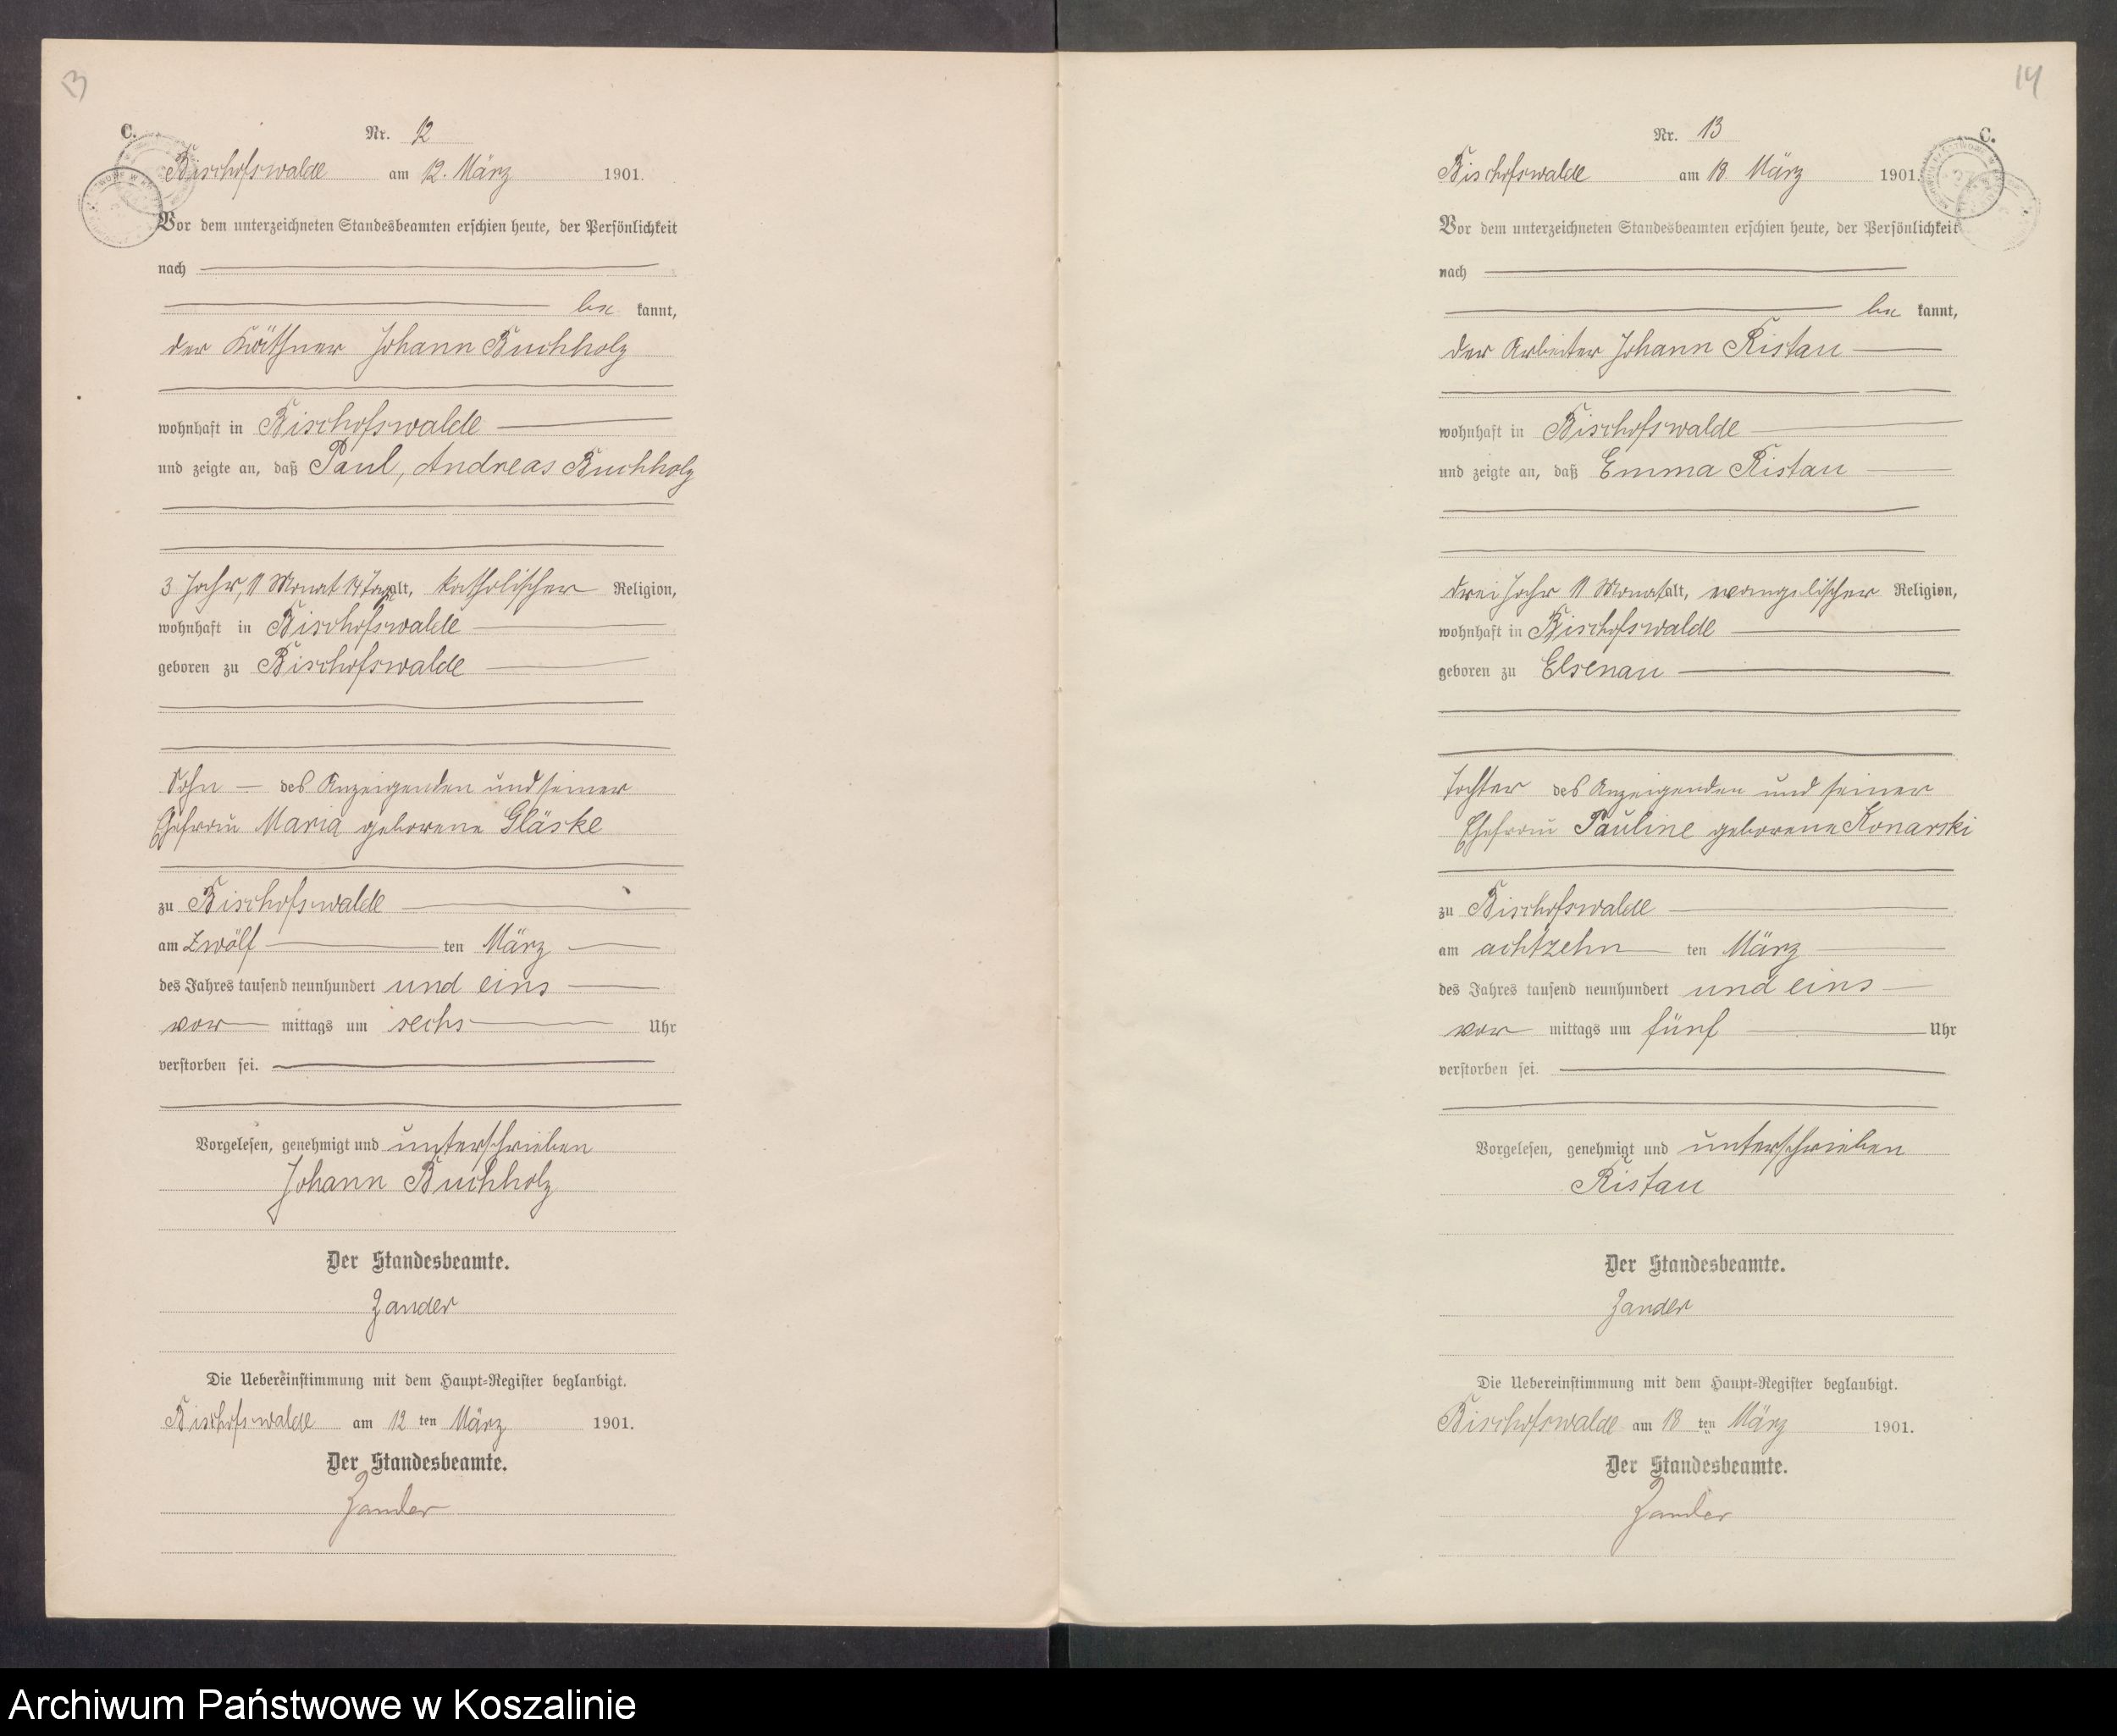 13
C.
Nr. 12
Bischofswalde am 12. März 1901.
Vor dem unterzeichneten Standesbeamten erschien heute, der Persönlichkeit
nach
be kannt,
der Käthner Johann Buchholz
wohnhaft in Bischofswalde
und zeigte an, daß Paul, Andreas Buchholz
3 Jahr, 11 Monat 14 Tage alt, katholischer Religion,
wohnhaft in Bischofswalde
geboren zu Bischofswalde
Sohn des Anzeigenden und seiner
Ehefrau Maria geborene Gläske
zu Bischofswalde
am Zwölf ten März
des Jahres tausend neunhundert und eins
vor mittags um sechs Uhr
verstorben sei.
Vorgelesen, genehmigt und unterschrieben
Johann Buchholz
Der Standesbeamte.
Zander
Die Uebereinstimmung mit dem Haupt-Register beglaubigt.
Bischofswalde am 12 ten März 1901.
Der Standesbeamte.
Zander
14
C.
Nr. 13
Bischofswalde am 18. März 1901.
Vor dem unterzeichneten Standesbeamten erschien heute, der Persönlichkeit
nach
be kannt,
der Arbeiter Johann Ristau
wohnhaft in Bischofswalde
und zeigte an, daß Emma Ristau
drei Jahr 11 Monat alt, evangelischer Religion,
wohnhaft in Bischofswalde
geboren zu Elsenau
Tochter des Anzeigenden und seiner
Ehefrau Pauline geborene Konarski
zu Bischofswalde
am achtzehn ten März
des Jahres tausend neunhundert und eins
vor mittags um fünf Uhr
verstorben sei.
Vorgelesen, genehmigt und unterschrieben
Ristau
Der Standesbeamte.
Zander
Die Uebereinstimmung mit dem Haupt-Register beglaubigt.
Bischofswalde am 18 ten März 1901.
Der Standesbeamte.
Zander
Archiwum Państwowe w Koszalinie